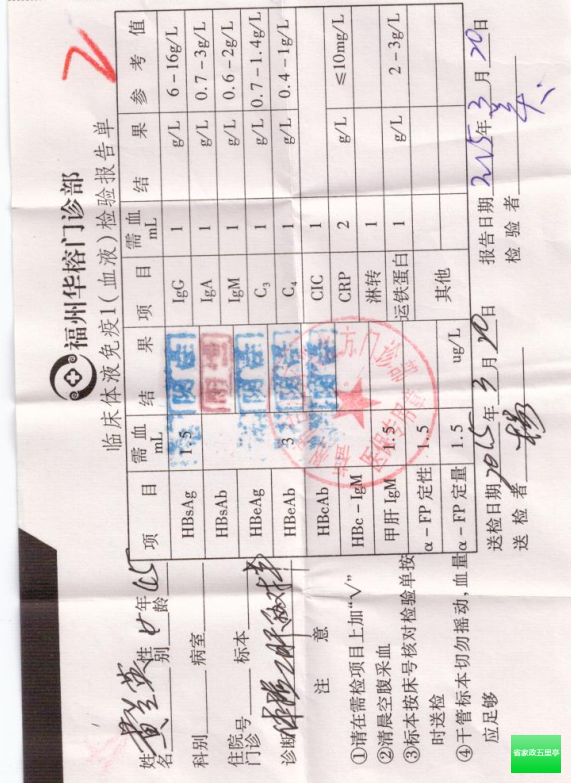 福州华榕门诊部
临床体液免疫1(血液)检验报告单
姓名 黄兰英 性别 女 年龄 65
科别 病室
住院门诊号 标本
诊断
注 意
①请在需检项目上加“√”
②清晨空腹采血
③标本按床号核对检验单按时送检
④干管标本切勿摇动,血量应足够
项 目 需血mL 结 果 项 目 需血mL 结 果 参 考 值
HBsAg 1.5 阴性 IgG 1 g/L 6-16g/L
HBsAb 阳性 IgA 1 g/L 0.7-3g/L
HBeAg 阴性 IgM 1 g/L 0.6-2g/L
HBeAb 3 阴性 C₃ 1 g/L 0.7-1.4g/L
HBcAb 阴性 C₄ 1 g/L 0.4-1g/L
HBc-IgM CIC 1
甲肝 IgM 1.5 CRP 2 g/L ≤10mg/L
α-FP 定性 1.5 淋转 1
α-FP 定量 1.5 ug/L 运铁蛋白 1 g/L 2-3g/L
其他
送检日期 2015年3月20日 报告日期 2015年3月20日
送检者 检验者
省家政五里亭